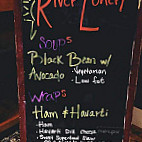 River Lunch
Soups
Black Bean w/
Avocado - Vegetarian
- Low fat
Wraps
Ham & Havarti
- Ham
- Havarti Dill Cheese